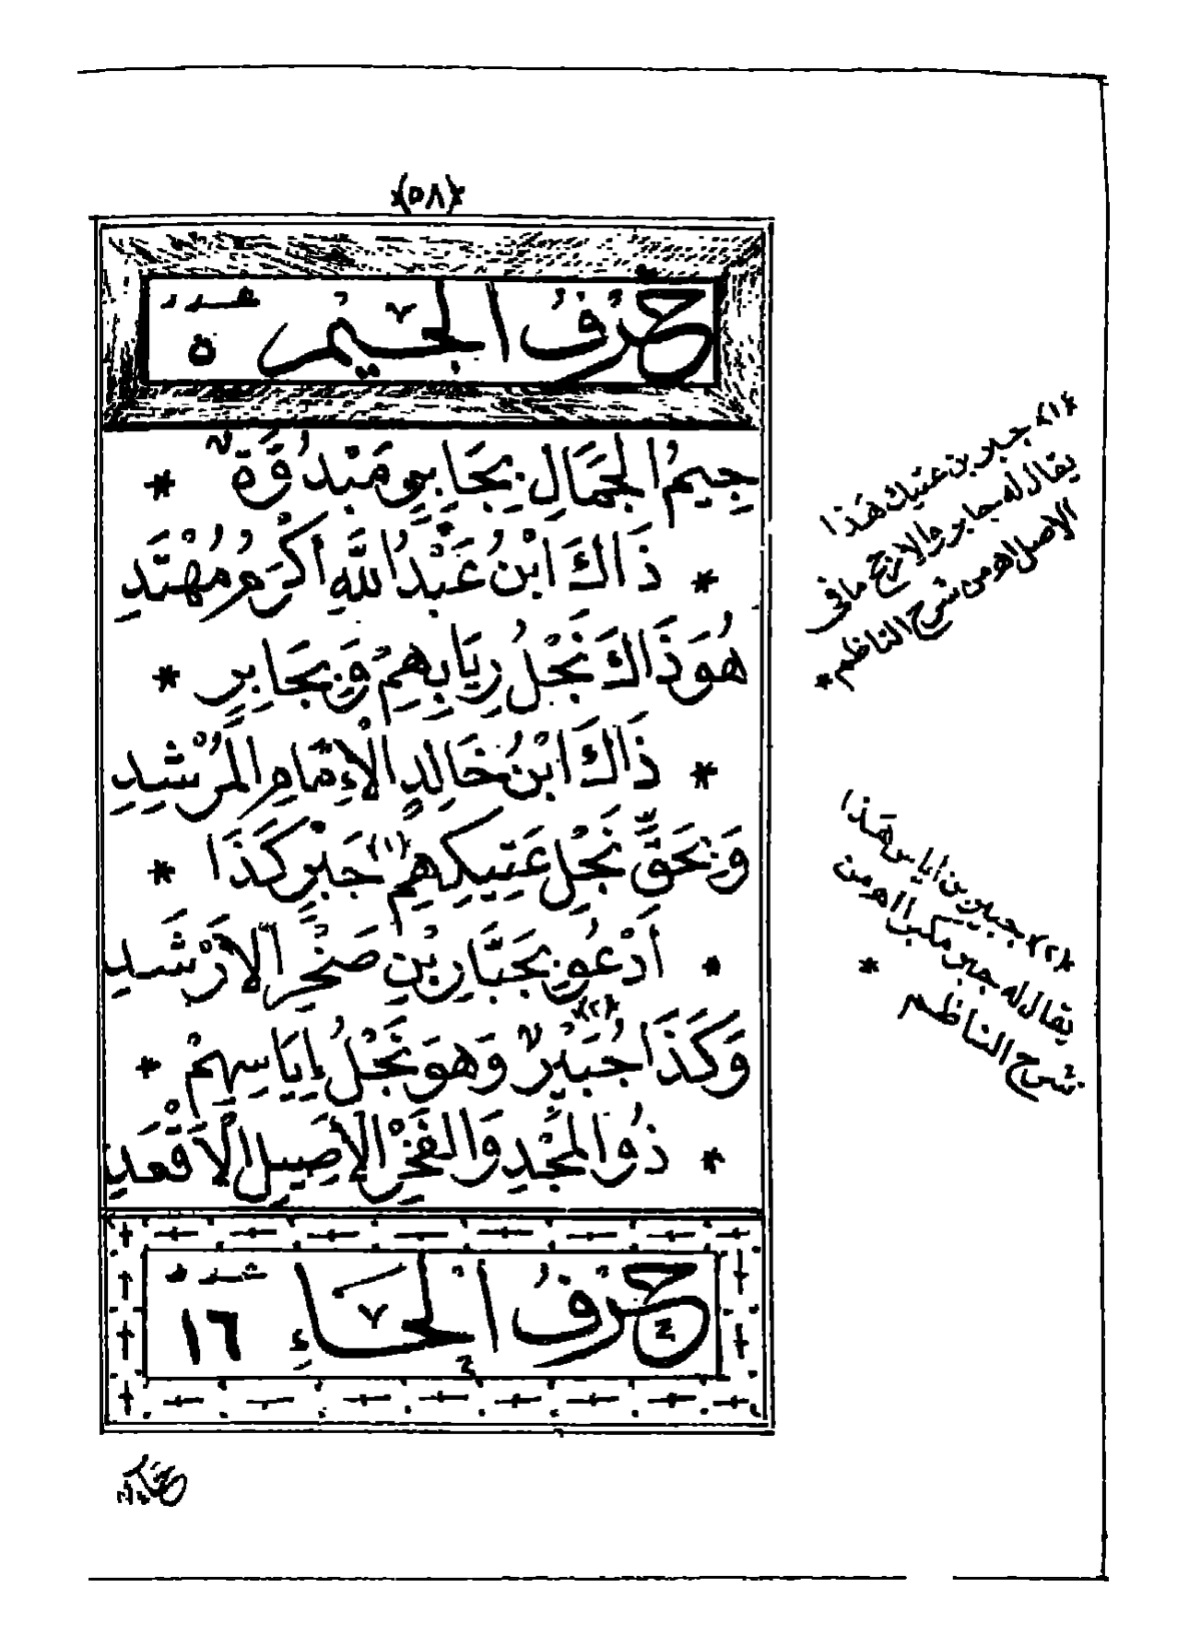 ﴿٥٨﴾
حَرْفُ الْجِيْمِ
عدد ٥
جِيمُ الْجَمَالِ بِجَابِرٍ مَبْدُوَّةٌ *
* ذَاكَ ابْنُ عَبْدُ اللَّهِ أَكْرَمُ مُهْتَدِ
هُوَ ذَاكَ نَجْلُ رِيَابِهِمْ وَبِجَابِرٍ *
* ذَاكَ ابْنُ خَالِدٍ الْإِمَامِ الْمُرْشِدِ
وَبِحَقِّ نَجْلِ عَتِيكِهِمْ ﴿١﴾ جَبْرٍ كَذَا *
* أَدْعُو بِجَبَّارِ بْنِ صَخْرٍ الْأَرْشَدِ
وَكَذَا جُبَيْرٌ ﴿٢﴾ وَهوَ نَجْلُ إِيَاسِهِمْ *
* ذُو الْمَجْدِ وَالْفَخْرِ الْأَصِيلِ الْأَقْعَدِ
حَرْفُ الْحَاءِ
عدد
١٦
﴿١﴾ جبر بن عتيك هَذا
يقال له جابر والارجح مافى
الاصل اهـ من شرح الناظم *
﴿٢﴾ جبير بن اياس هَذا
يقال له جبر مكبرا اهـ من
شرح الناظم *